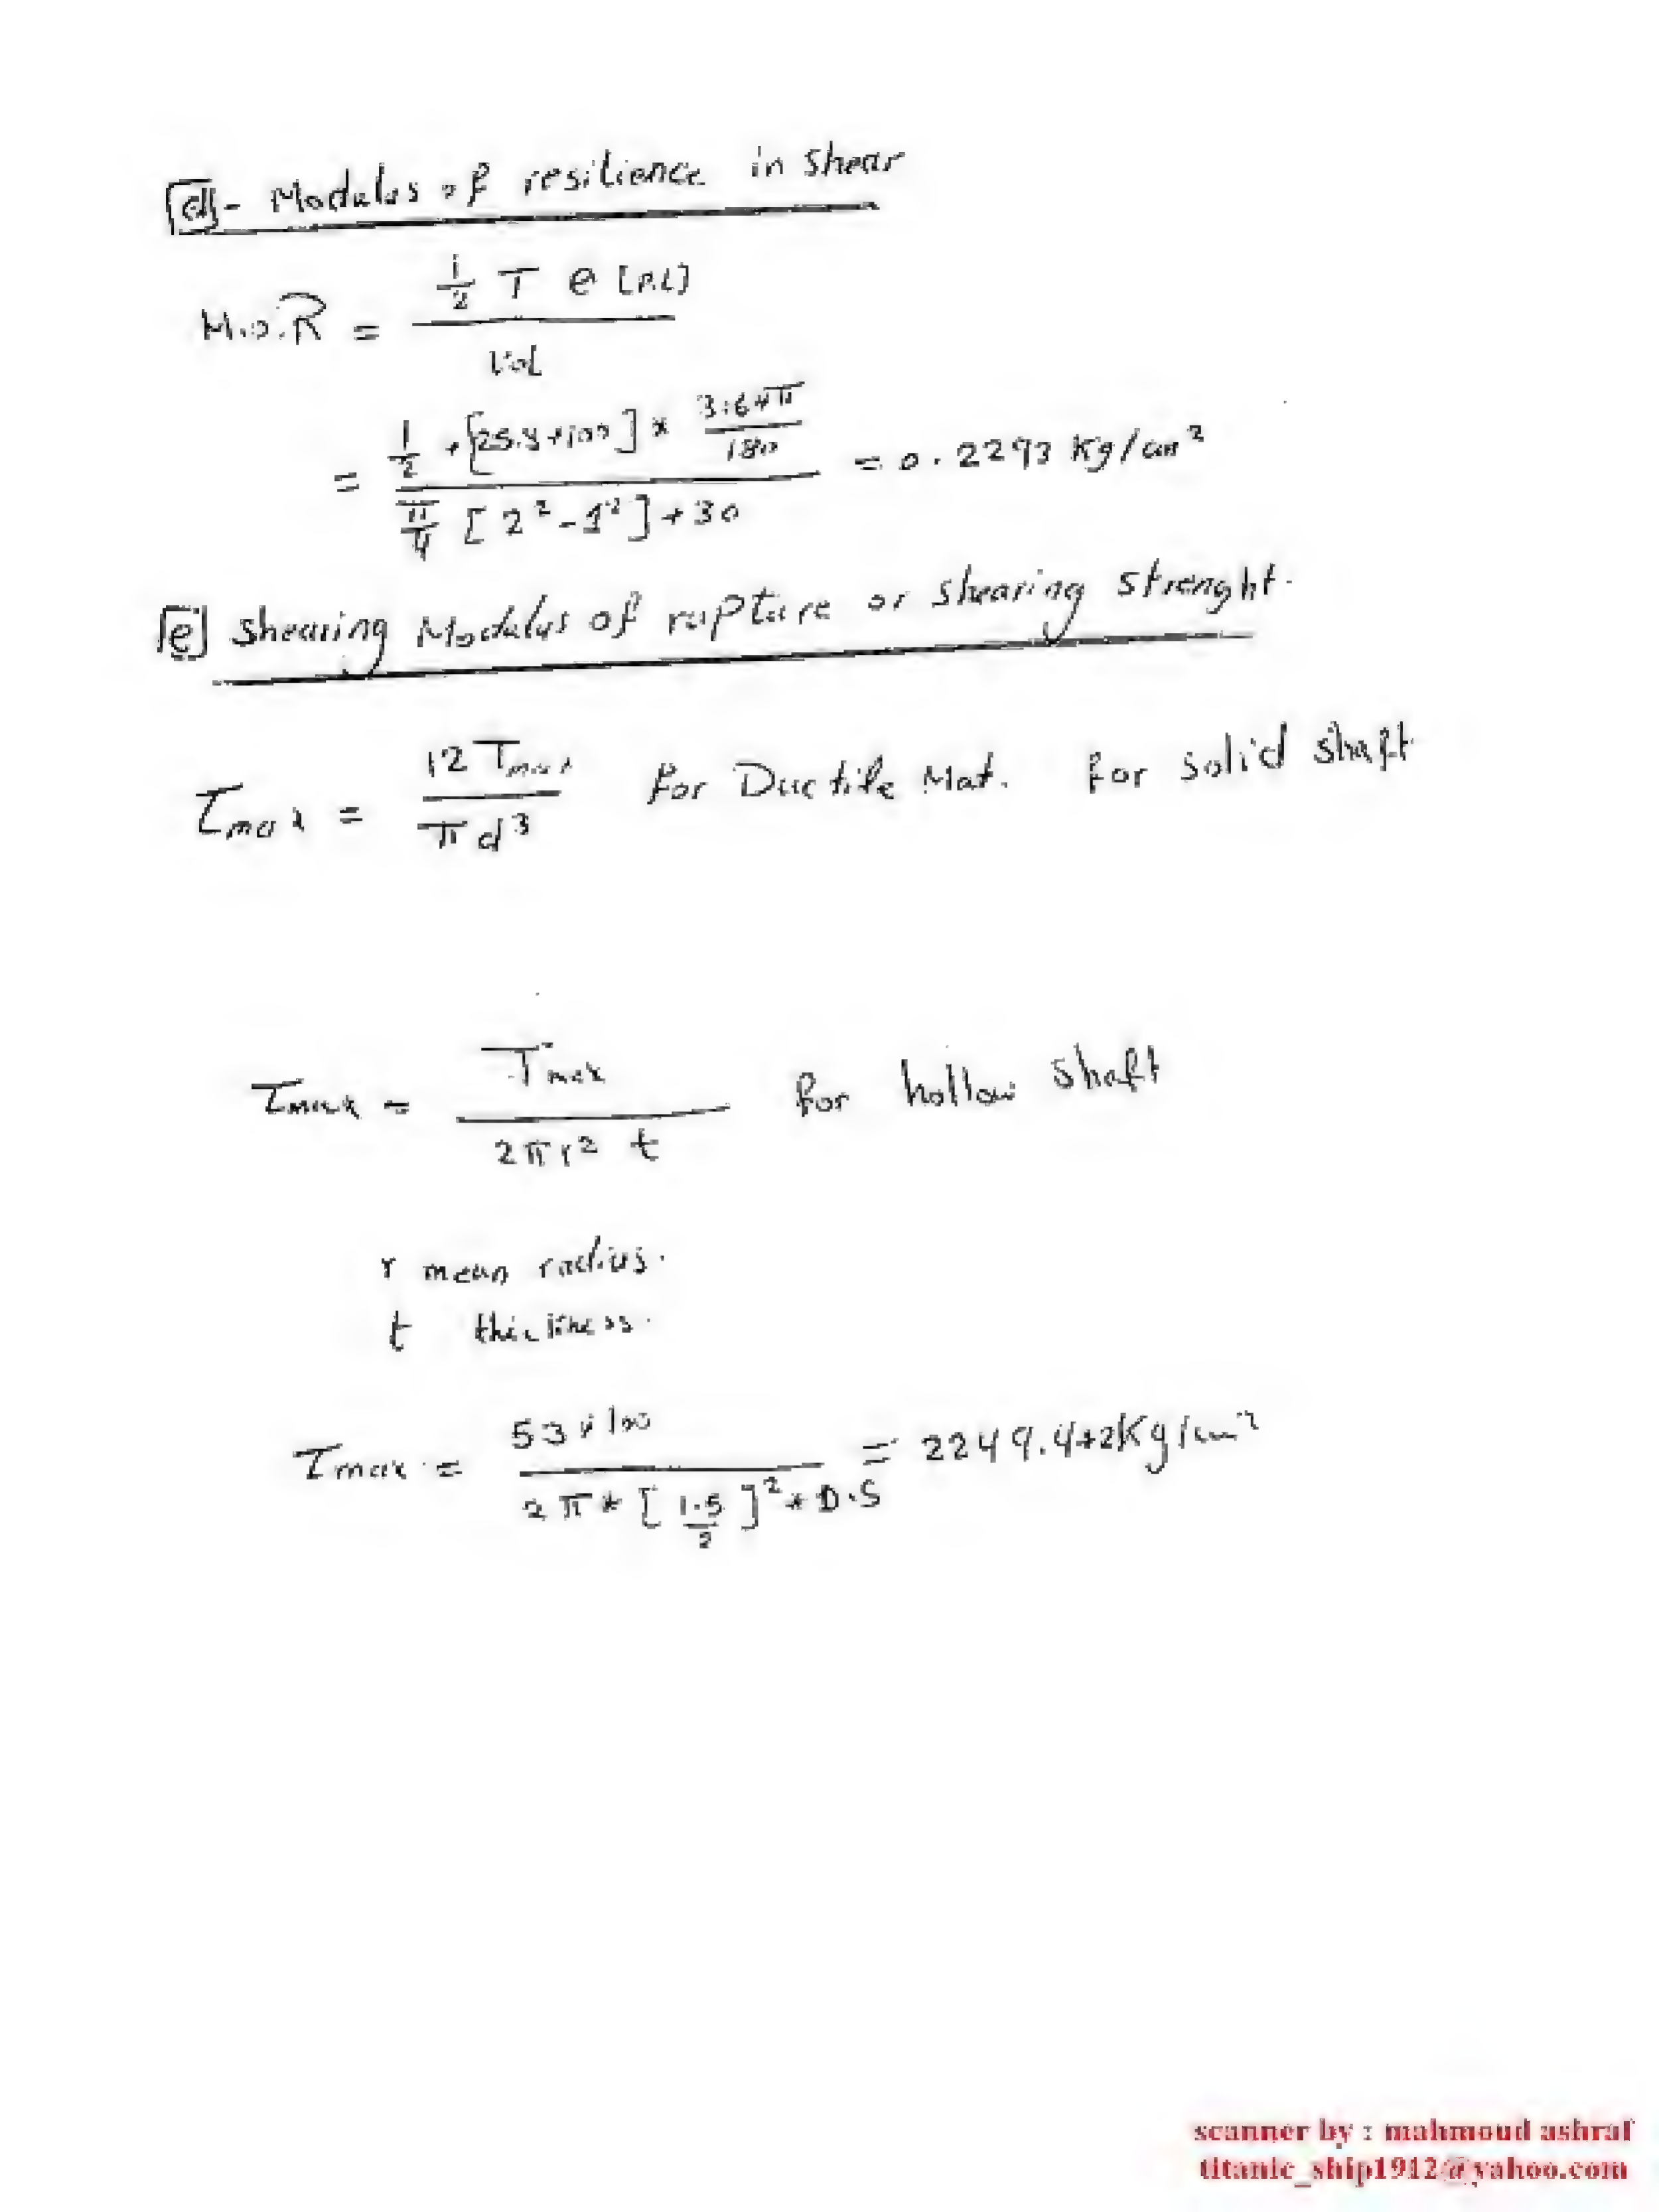 [d] - Modulus of resilience in shear
M.O.R = (1/2 T θ [P.L]) / Vol
= (1/2 * [25.4*100] * 3.64π/180) / (π/4 [2² - 1²] * 30) = 0.2293 Kg/cm²
[e] shearing Modulus of rupture or shearing strenght.
τmax = 12 Tmax / πd³ for Ductile Mat. for solid shaft
τmax = Tmax / 2πr² t for hollow shaft
r mean radius.
t thickness.
τmax = 53*100 / (2π * [1.5/2]² * 0.5) = 2249.42 Kg/cm²
scanner by : mahmoud ashraf
titanic_ship1912@yahoo.com